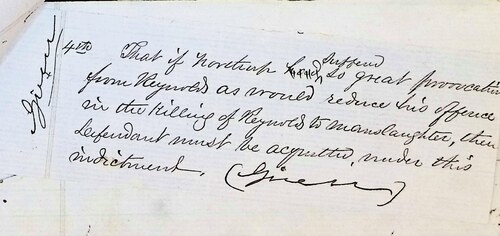 Given
4th That if Northrup suffered so great provocation
from Reynolds as would reduce his offence
in the Killing of Reynolds to manslaughter, then
defendant must be acquitted, under this
indictment. (Given)